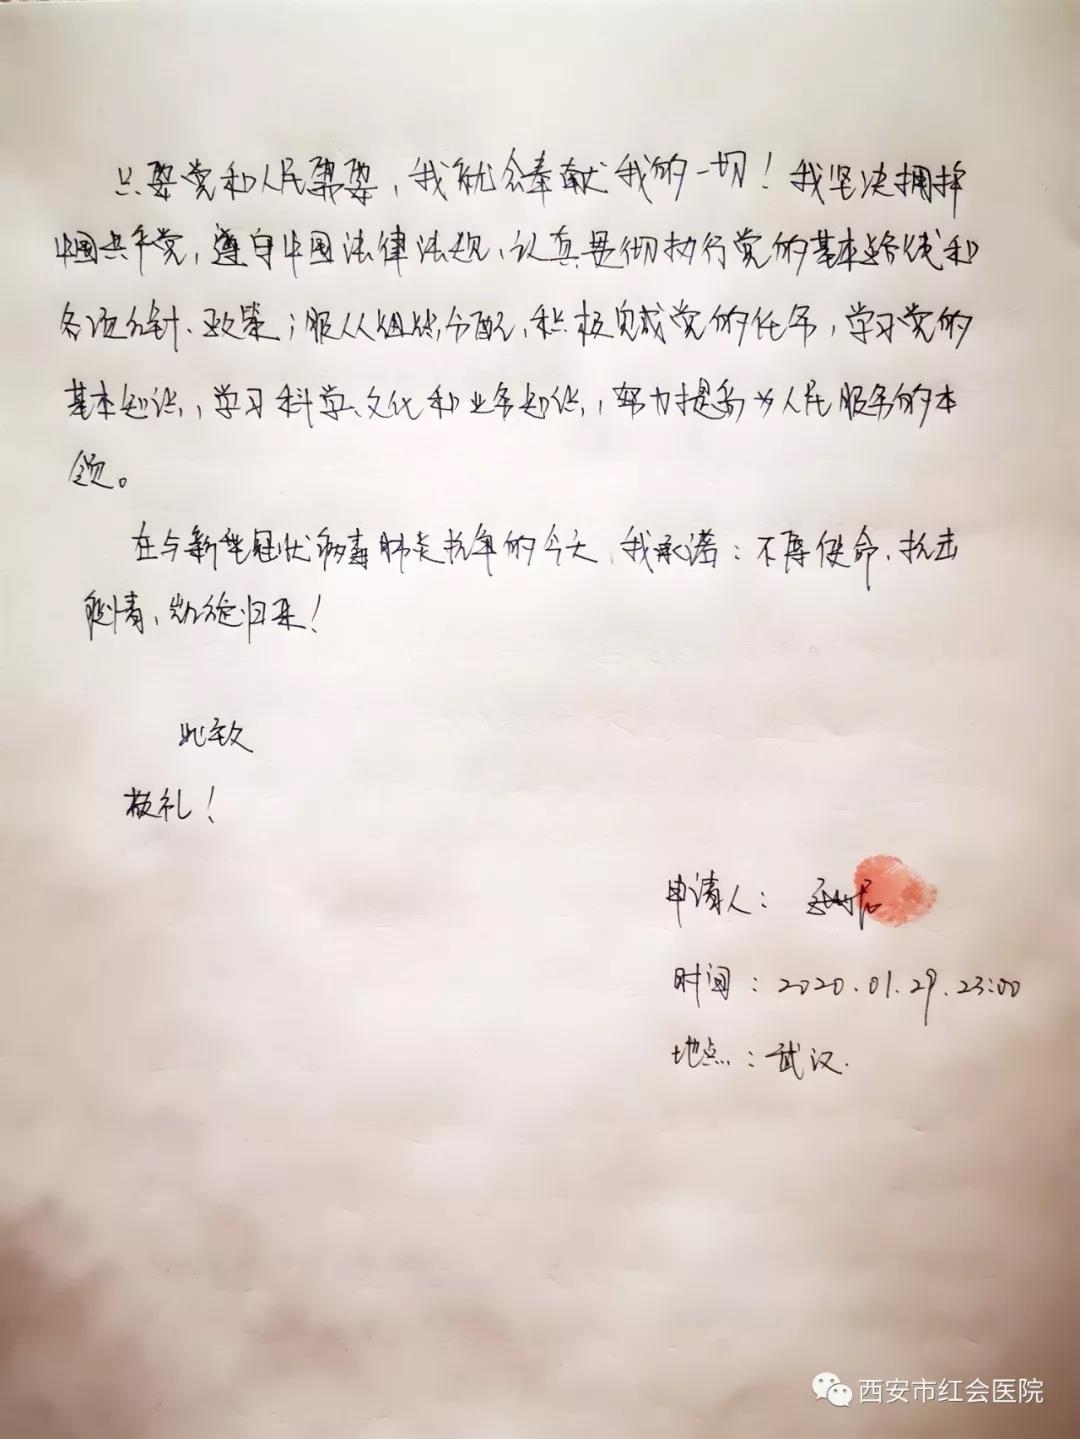 只要党和人民需要，我就会奉献我的一切！我坚决拥护
中国共产党，遵守中国法律法规，认真贯彻执行党的基本路线和
各项方针、政策；服从组织分配，积极完成党的任务，学习党的
基本知识，学习科学、文化和业务知识，努力提高为人民服务的本
领。
在与新型冠状病毒肺炎抗争的今天，我承诺：不辱使命，抗击
疫情，凯旋归来！
此致
敬礼！
申请人：
时间：2020.01.29.23:00
地点：武汉.
西安市红会医院